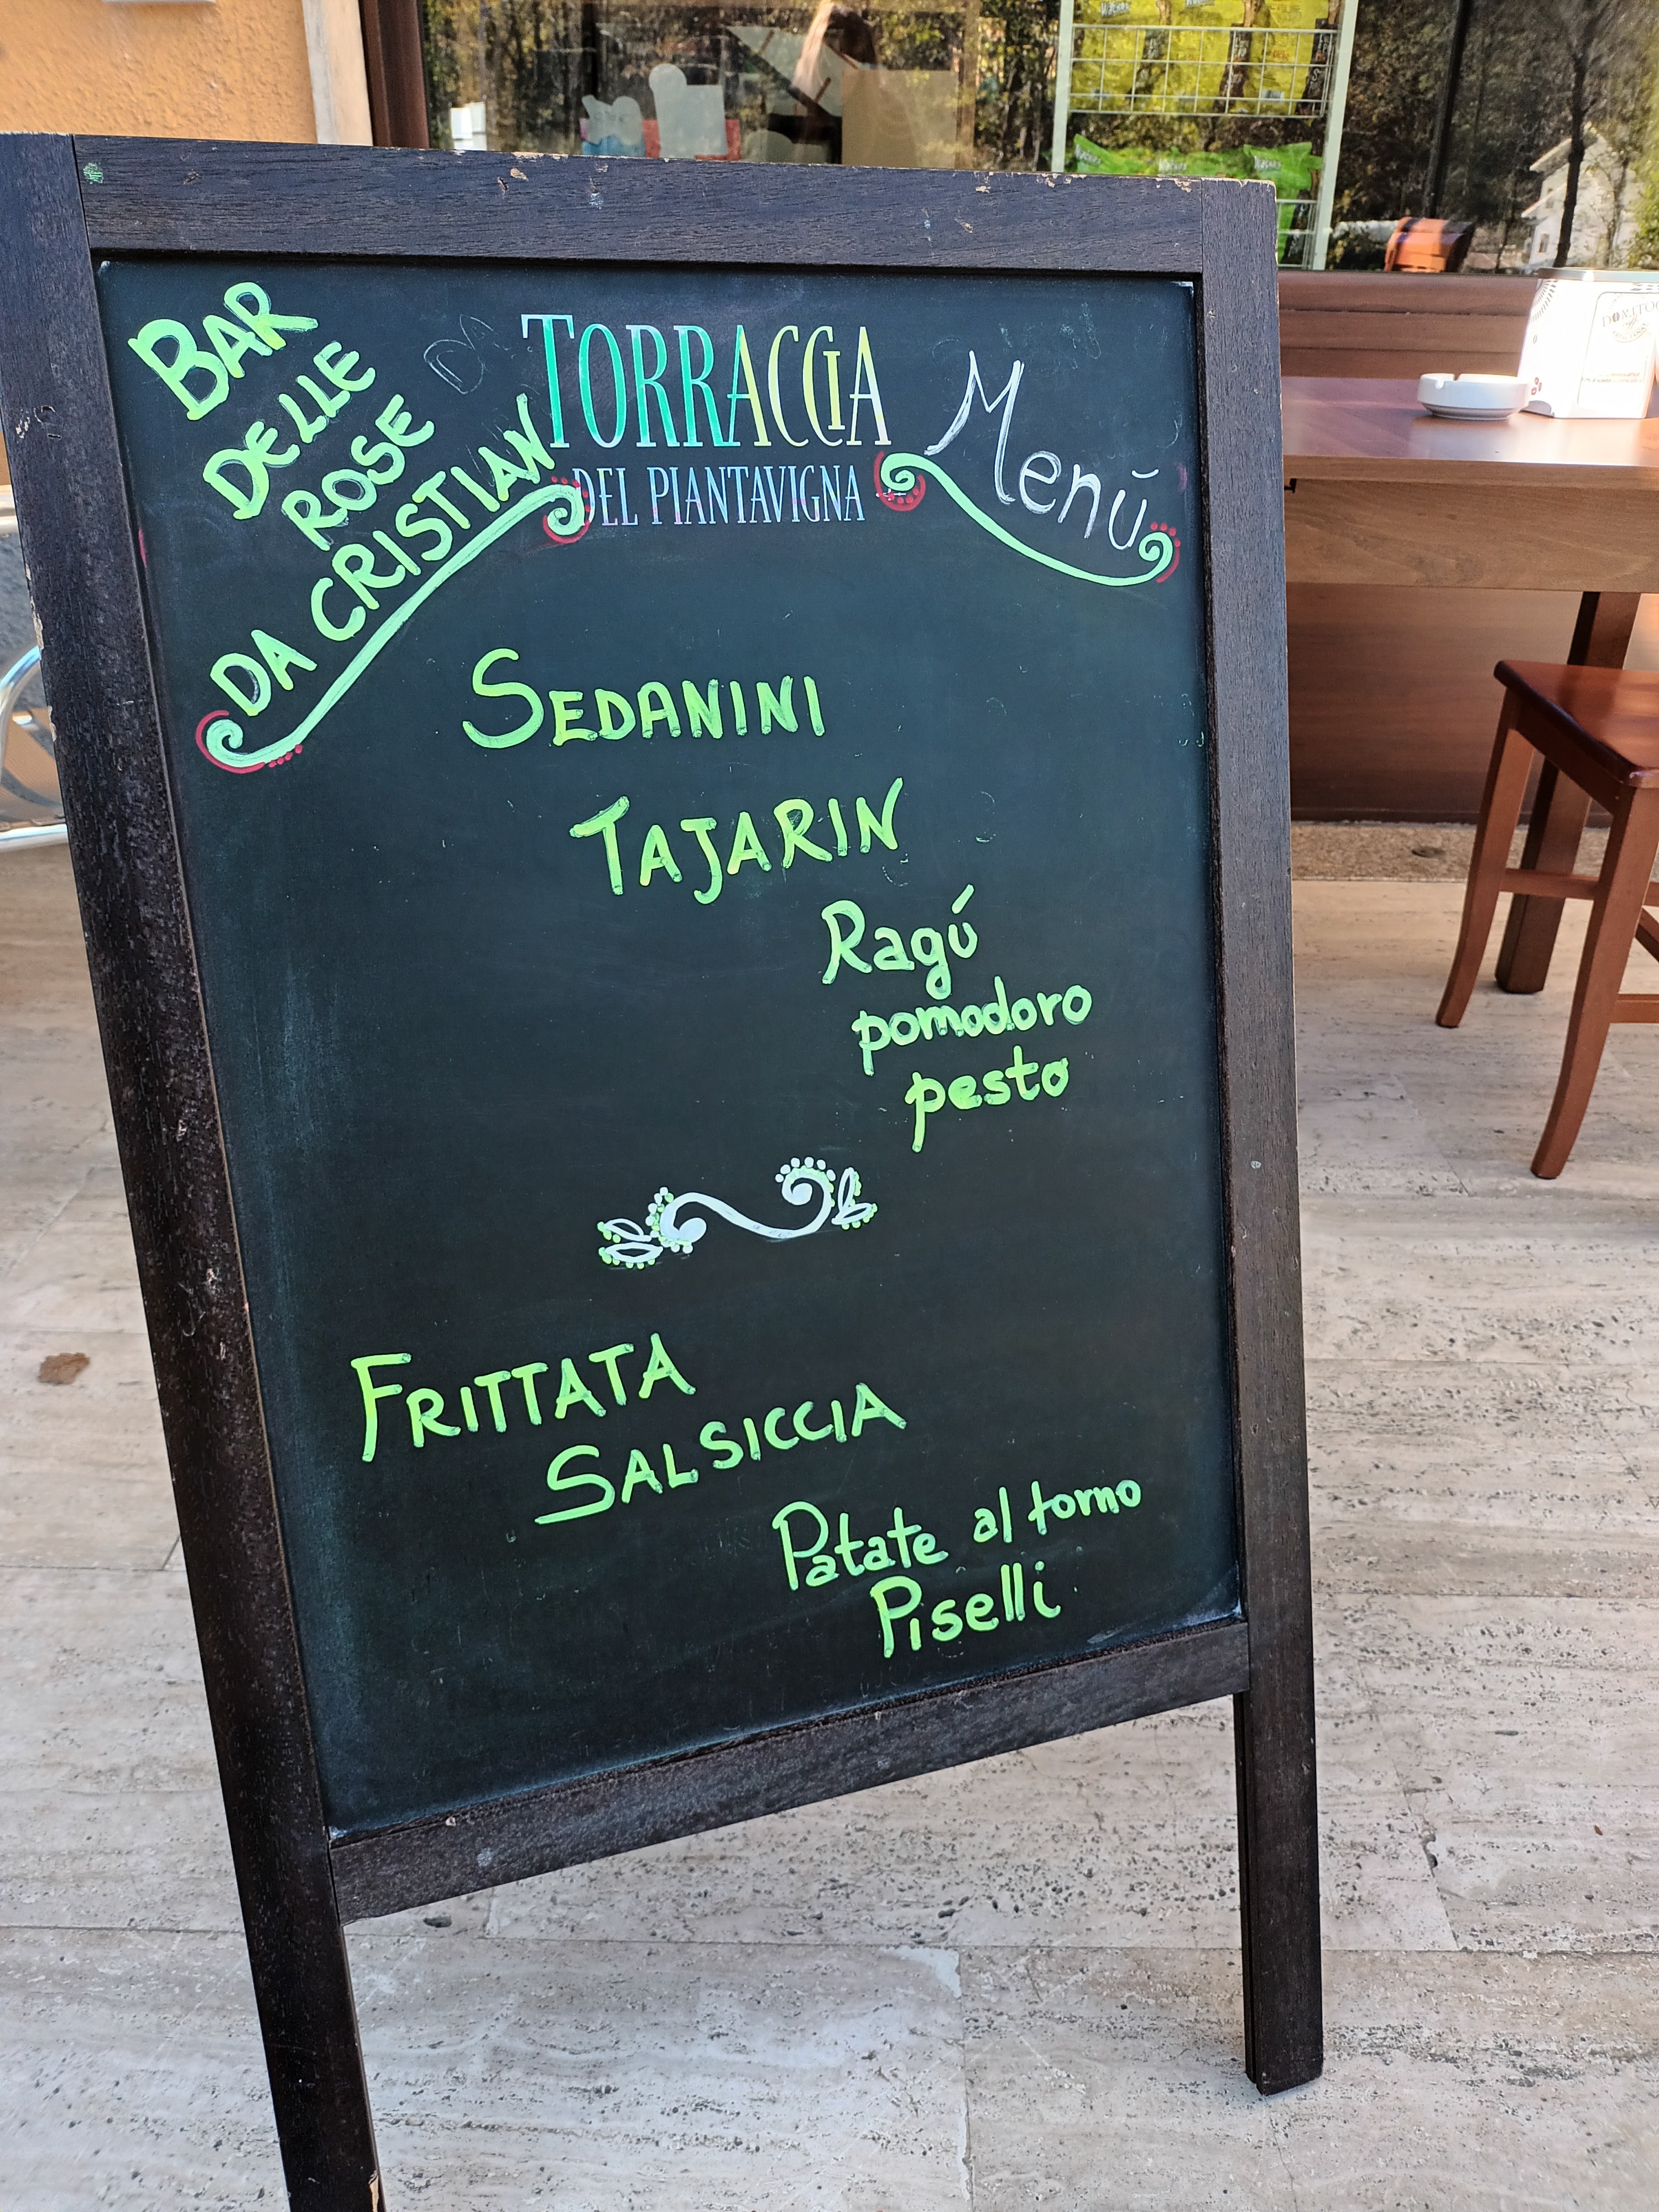 BAR
DELLE
ROSE
DA CRISTIAN
TORRACCIA
DEL PIANTAVIGNA
Menú
SEDANINI
TAJARIN
Ragú
pomodoro
pesto
FRITTATA
SALSICCIA
Patate al forno
Piselli